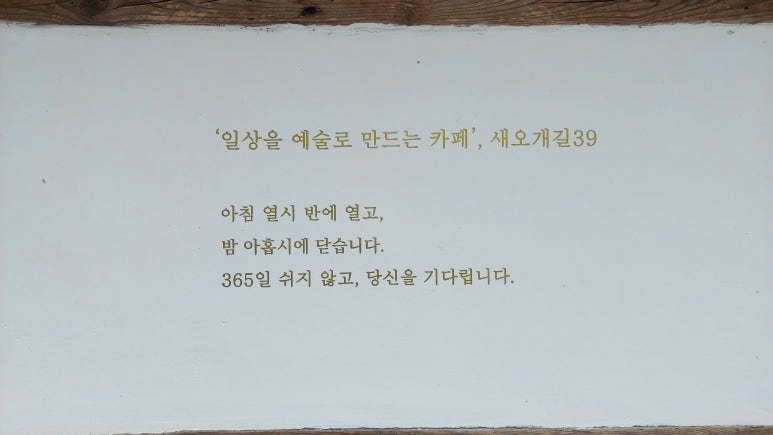 ‘일상을 예술로 만드는 카페’, 새오개길39
아침 열시 반에 열고,
밤 아홉시에 닫습니다.
365일 쉬지 않고, 당신을 기다립니다.